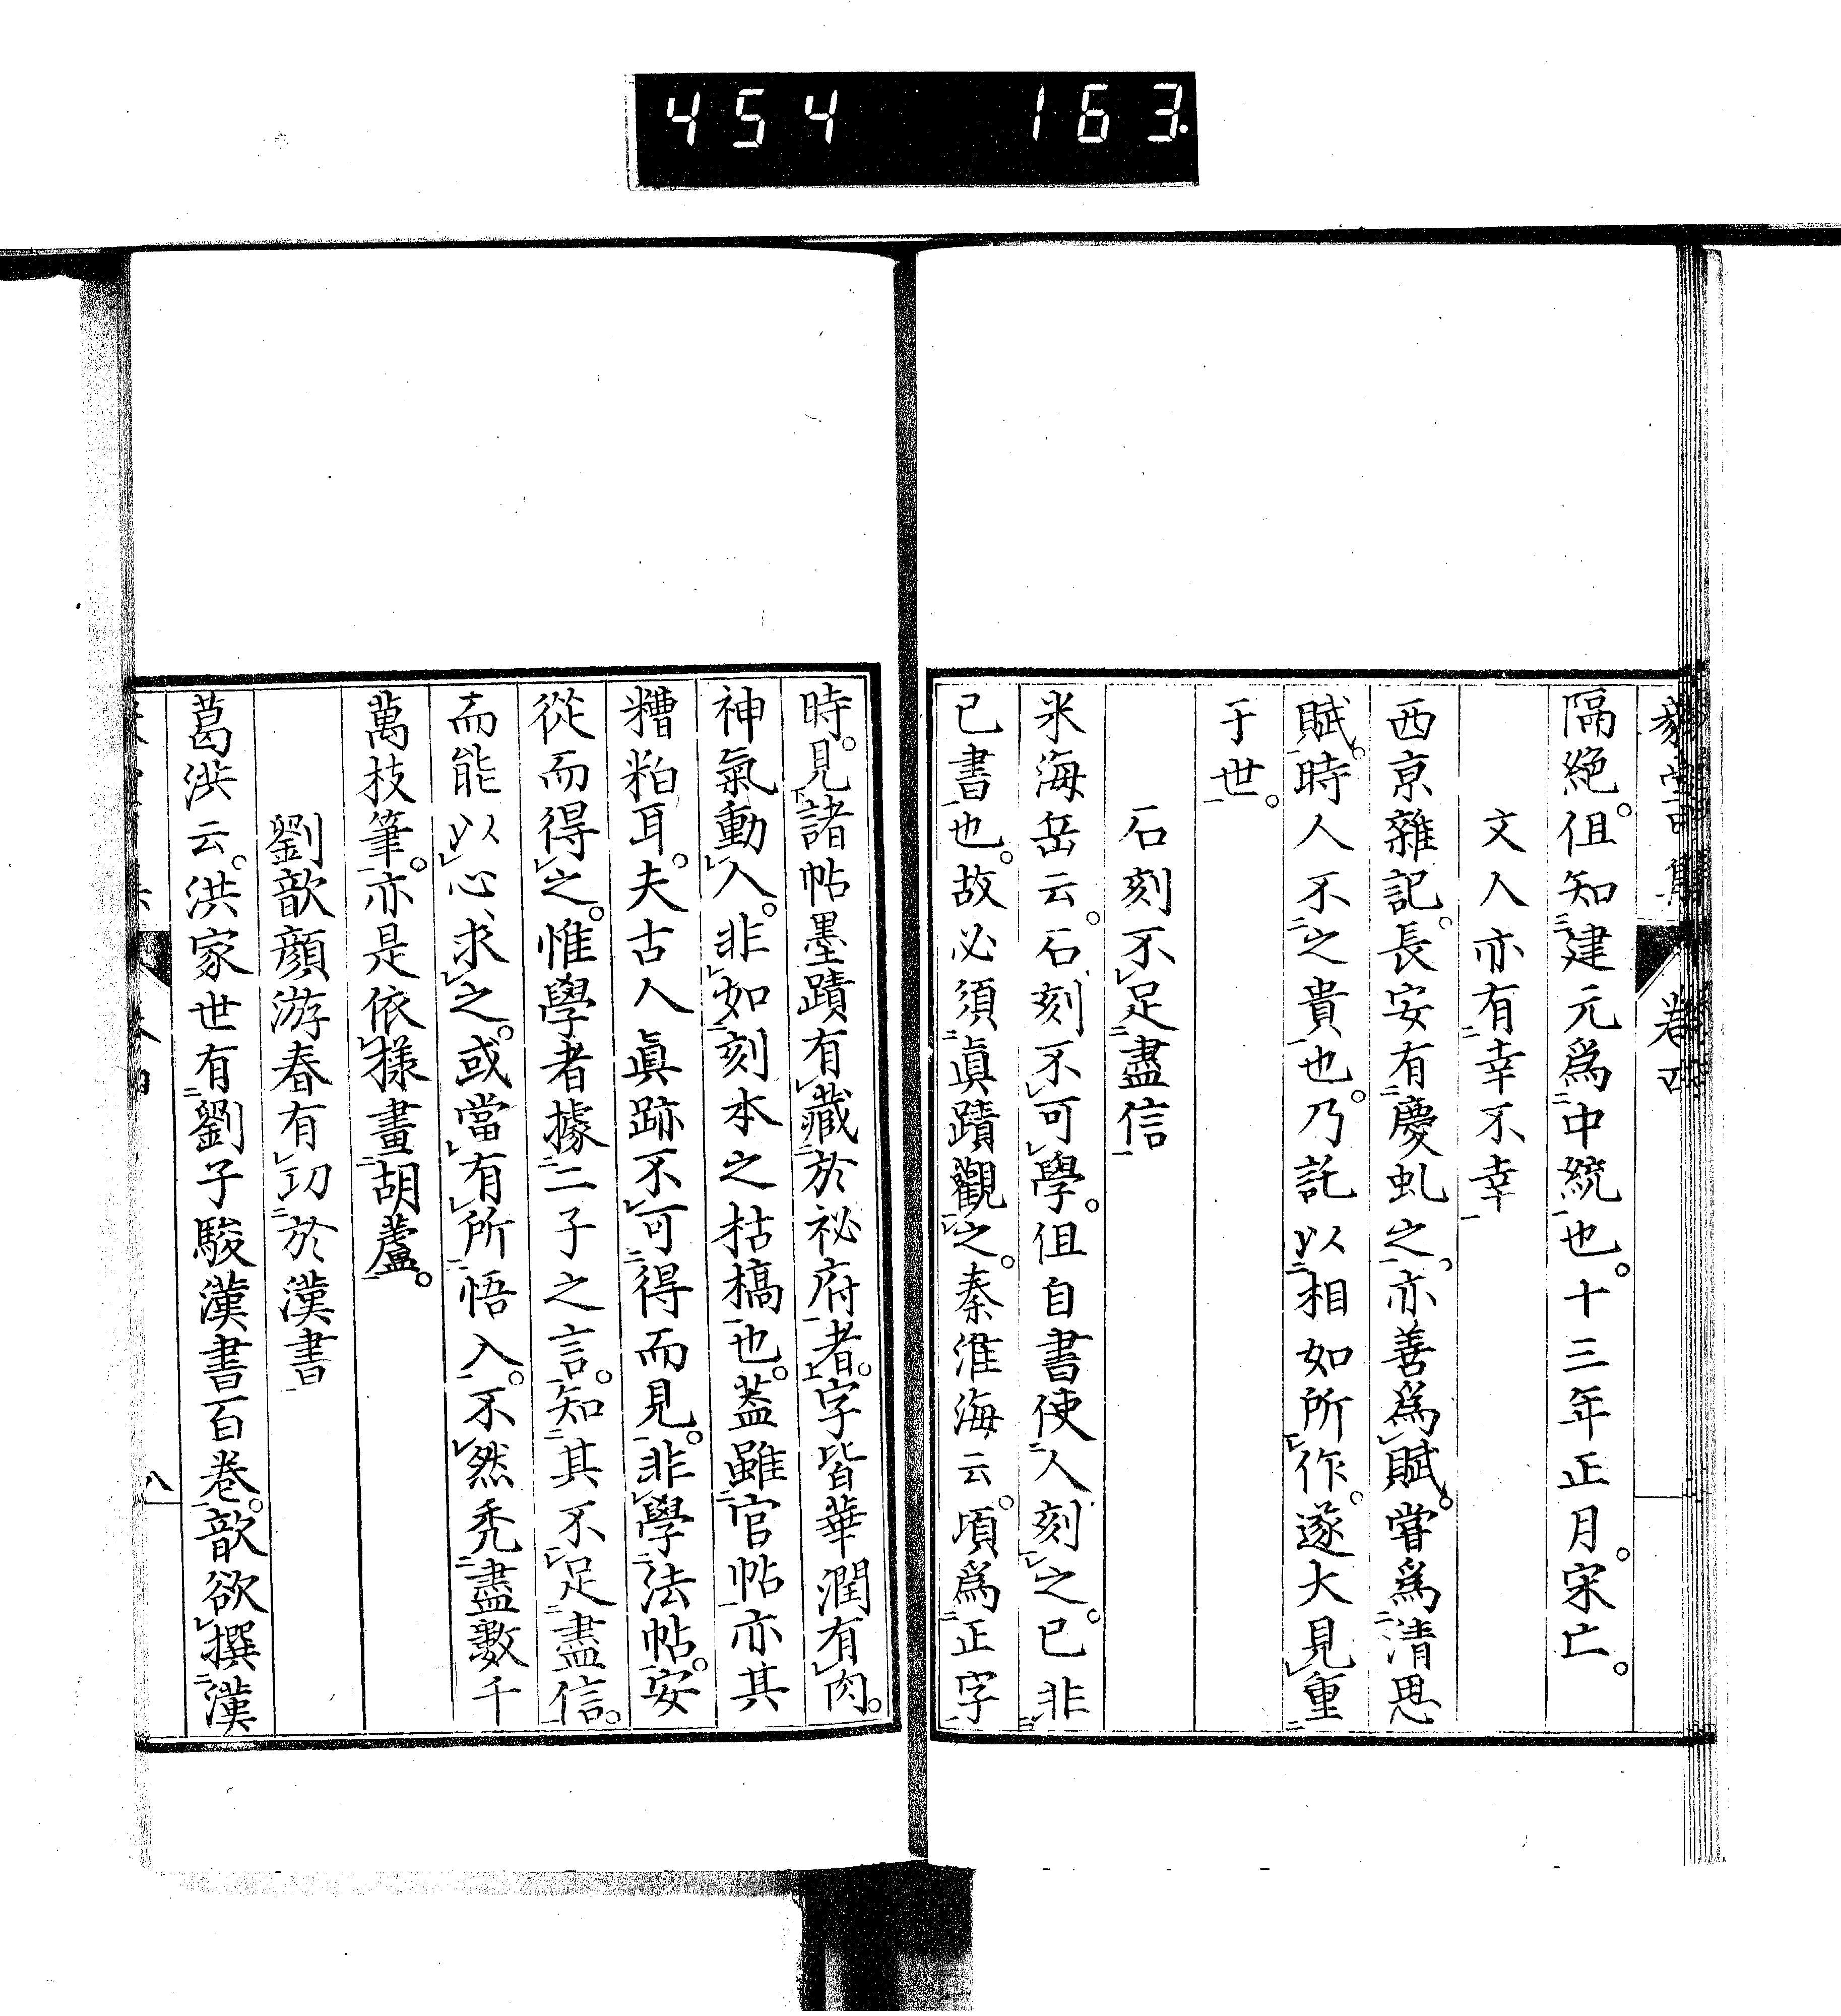 454 163
隔絶。但知建元爲中統也。十三年正月。宋亡。
文人亦有幸不幸
西京雜記。長安有慶虬之。亦善爲賦。嘗爲清思
賦。時人不之貴也。乃託以相如所作。遂大見重
于世。
石刻不足盡信
米海岳云。石刻不可學。但自書使人刻之。已非
已書也。故必須眞蹟觀之。秦淮海云。頃爲正字
時。見諸帖墨蹟有藏於祕府者。字皆華潤有肉。
神氣動人。非如刻本之枯槁也。蓋雖官帖亦其
糟粕耳。夫古人眞跡不可得而見。非學法帖。安
從而得之。惟學者據二子之言。知其不足盡信。
而能以心求之。或當有所悟入。不然秃盡數千
萬枝筆。亦是依樣畫胡蘆。
劉歆顔游春有功於漢書
葛洪云。洪家世有劉子駿漢書百卷。歆欲撰漢
八